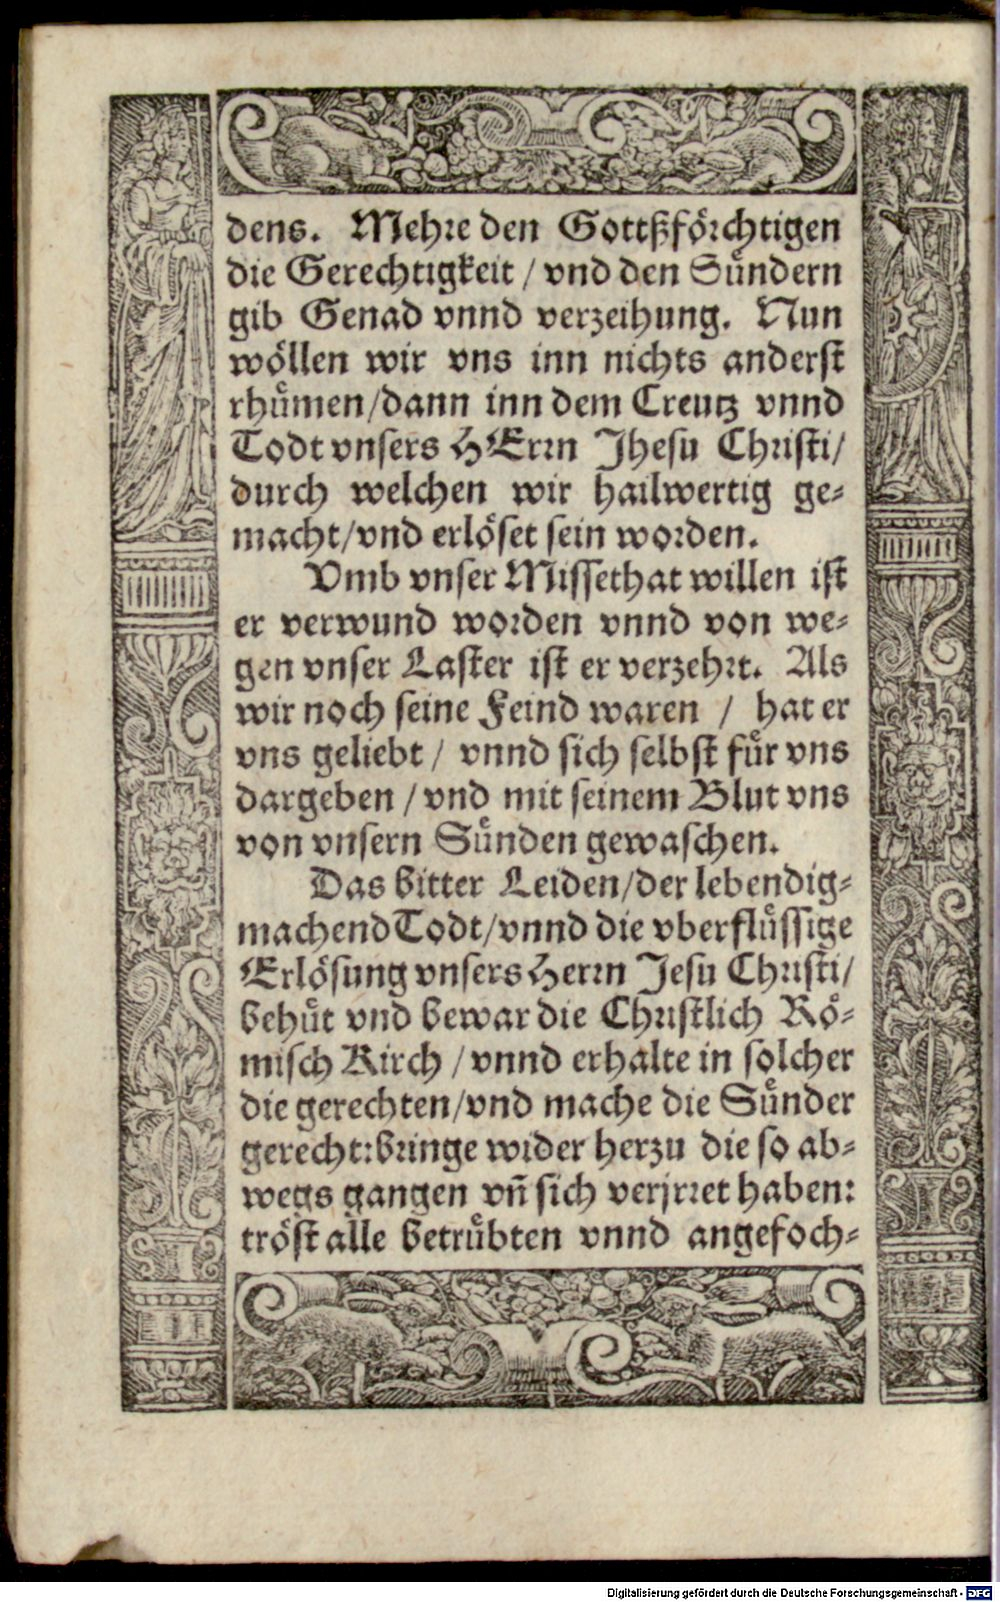 dens. Mehre den Gottßförchtigen
die Gerechtigkeit / vnd den Sündern
gib Genad vnnd verzeihung. Nun
wöllen wir vns inn nichts anderst
rhümen/dann inn dem Creutz vnnd
Todt vnsers HErrn Jhesu Christi/
durch welchen wir hailwertig ge-
macht/vnd erlöset sein worden.
Vmb vnser Missethat willen ist
er verwund worden vnnd von we-
gen vnser Laster ist er verzehrt. Als
wir noch seine Feind waren / hat er
vns geliebt / vnnd sich selbst für vns
dargeben / vnd mit seinem Blut vns
von vnsern Sünden gewaschen.
Das bitter Leiden/der lebendig-
machend Todt/vnnd die vberflüssige
Erlösung vnsers Herrn Jesu Christi/
behüt vnd bewar die Christlich Rö-
misch Kirch / vnnd erhalte in solcher
die gerechten/vnd mache die Sünder
gerecht:bringe wider herzu die so ab-
wegs gangen vñ sich verjrret haben:
tröst alle betrübten vnnd angefoch-
Digitalisierung gefördert durch die Deutsche Forschungsgemeinschaft - DFG